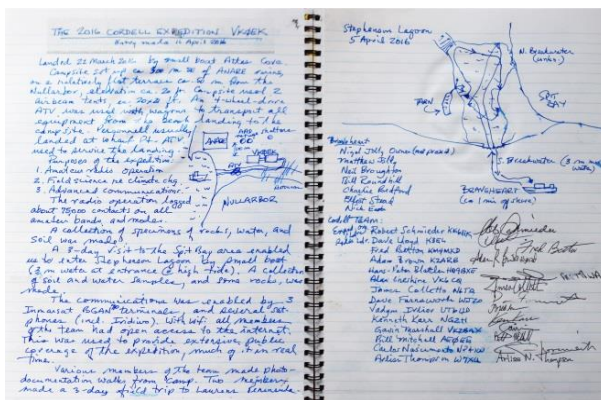 THE 2016 CORDELL EXPEDITION VKØEK
Entry made 11 April 2016
Landed 21 March 2016 by small boat Atlas Cove.
Campsite set up ca 300 m SE of ANARE ruins,
on a relatively flat terrace ca 50 m from the
Nullarbor, elevation ca. 20 ft. Campsite used 2
Airbeam tents, ca. 20x20 ft. An 4-wheel-drive
ATV was used with wagons to transport all
equipment from the beach landing to the
campsite. Personnel usually
landed at Wharf Pt. ATV
used to service the landing
Purposes of the expedition:
1. Amateur radio operation
2. Field science re climate chg.
3. Advanced communication.
The radio operation logged
about 75000 contacts on all
amateur bands and modes.
A collection of specimens of rocks, water, and
soil was made.
A 3-day visit to the Spit Bay area enabled
us to enter Stephenson Lagoon by small boat
(3 m water at entrance @ high tide). A collection
of soil and water samples, and some rocks, was
made.
The communications was enabled by 3
Inmarsat BGAN terminals and several sat
phones (incl. Iridium). With wifi all members
of the team had open access to the internet.
This was used to provide extensive public
coverage of the expedition, much of it in real
time.
Various members of the team made photo-
documentation walks from camp. Two members
made a 3-day field trip to Laurens Peninsula.
ANARE
VKØEK
ATV
NULLARBOR
Stephenson Lagoon
5 April 2016
N. Breakwater
SPIT
BAY
TARN
S. Breakwater
BRAVEHEART
(ca 1 mi offshore)
Braveheart
Nigel Jolly Owner (not present)
Matthew Jolly
Neil Broughton
Bill Roundhill
Charlie Bedford
Elliot Stead
Nick
Cordell Team:
Robert Schmieder KK6EK
Dave Lloyd K3EL
Fred Belton KM4MXD
Adam Brown K2ARB
Hans-Peter Blättler HB9BXE
Alan Cheshire VK6CQ
James Colletto N6TQ
Dave Farnsworth WJ2O
Vadym Ivliev UT6UD
Kenneth Karr NG2H
Gavin Marshall VK2BAX
Bill Mitchell AEØEE
Carlos Nascimento NP4IW
Arliss Thompson W7XU